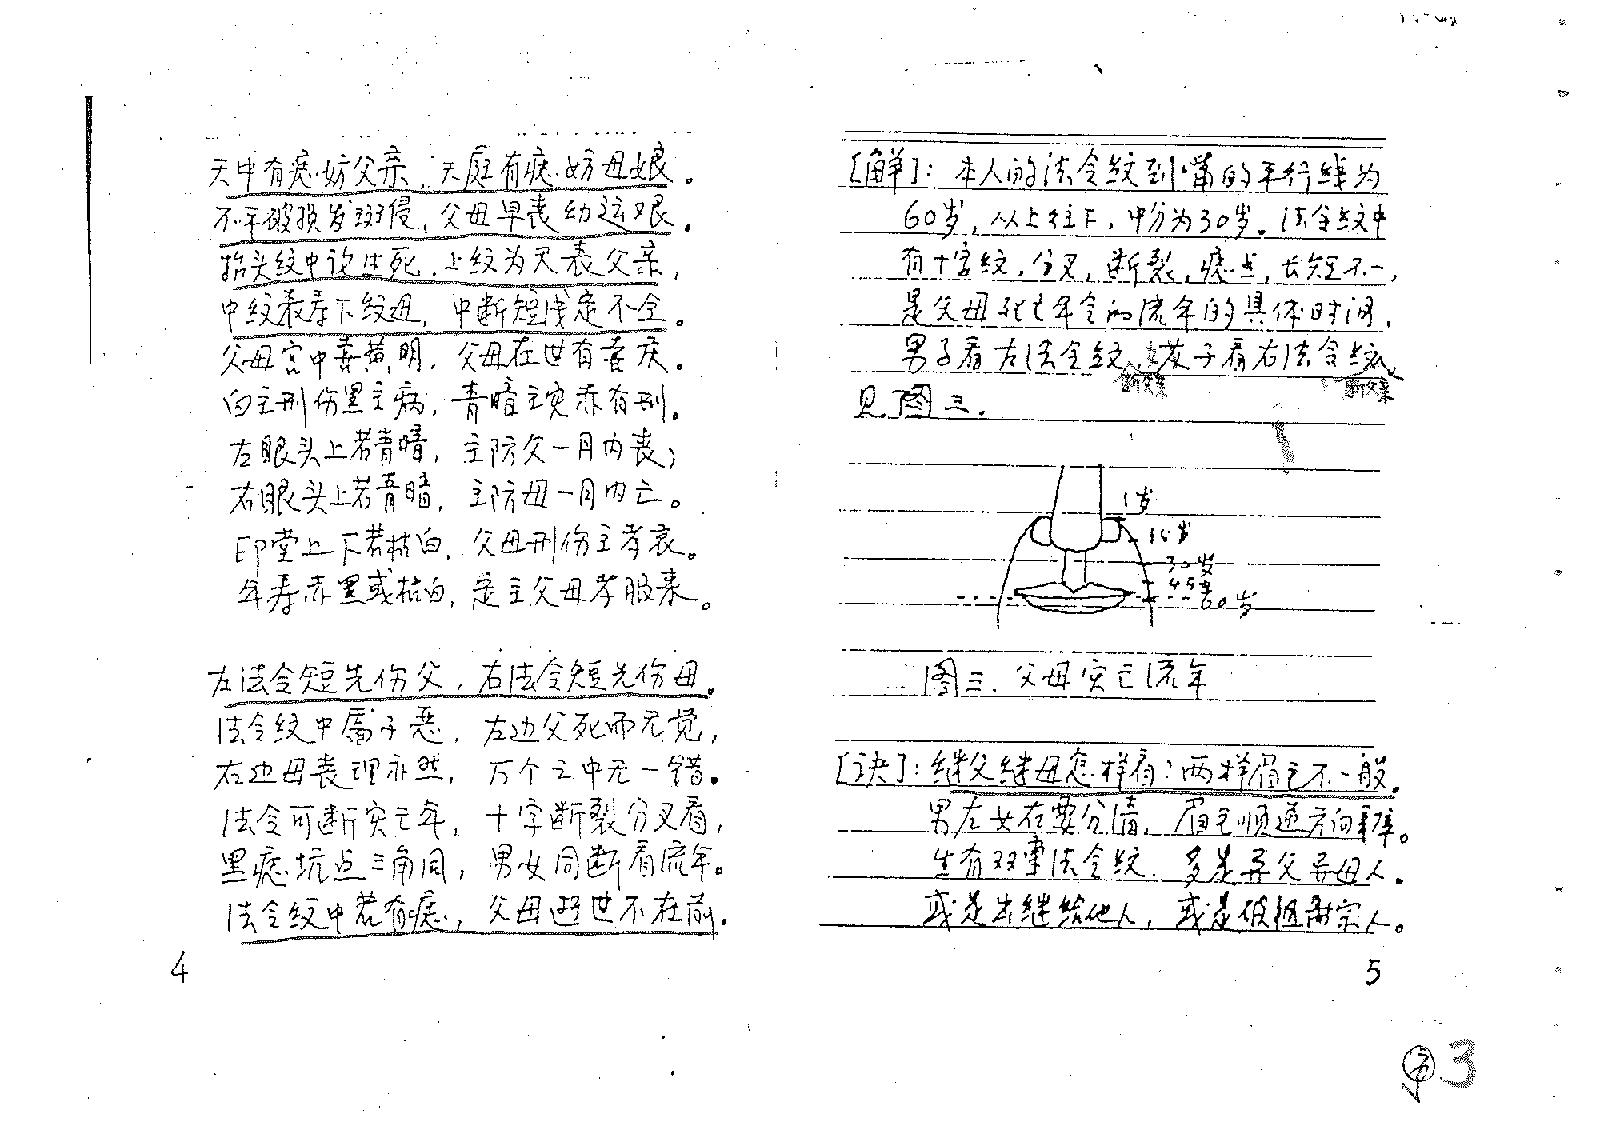 天中有痣妨父亲，天庭有痣妨母娘。
不平破损发斑侵，父母早丧幼运艰。
抬头纹中论生死，上纹为天表父亲，
中纹表寿下纹母，中断短浅定不全。
父母宫中喜黄明，父母在世有喜庆。
白主刑伤黑主病，青暗主灾赤有刑。
左眼头上若青暗，主防父一月内丧；
右眼头上若青暗，主防母一月内亡。
印堂上下若枯白，父母刑伤主孝哀。
年寿赤黑或枯白，定主父母孝服来。
左法令短先伤父，右法令短先伤母。
法令纹中属子恶，左边父死而无觉，
右边母丧理亦然，万个之中无一错。
法令可断灾亡年，十字断裂分叉看，
黑痣坑点三角同，男女同断看流年。
法令纹中若有痣，父母逝世不在前。
4
[解]：本人的法令纹到嘴的平行线为
60岁，从上往下，中分为30岁。法令纹中
有十字纹，分叉，断裂，痣点，长短不一，
是父母死亡年令的流年的具体时间，
男子看左法令纹，女子看右法令纹
见图三.
1岁
30岁
45岁
60岁
图三. 父母灾亡流年
[诀]：继父继母怎样看：两样眉毛不一般。
男左女右要分清，眉毛顺逆方向乖。
生有双重法令纹，多是异父异母人。
或是出继给他人，或是破祖耐宗人。
5
3